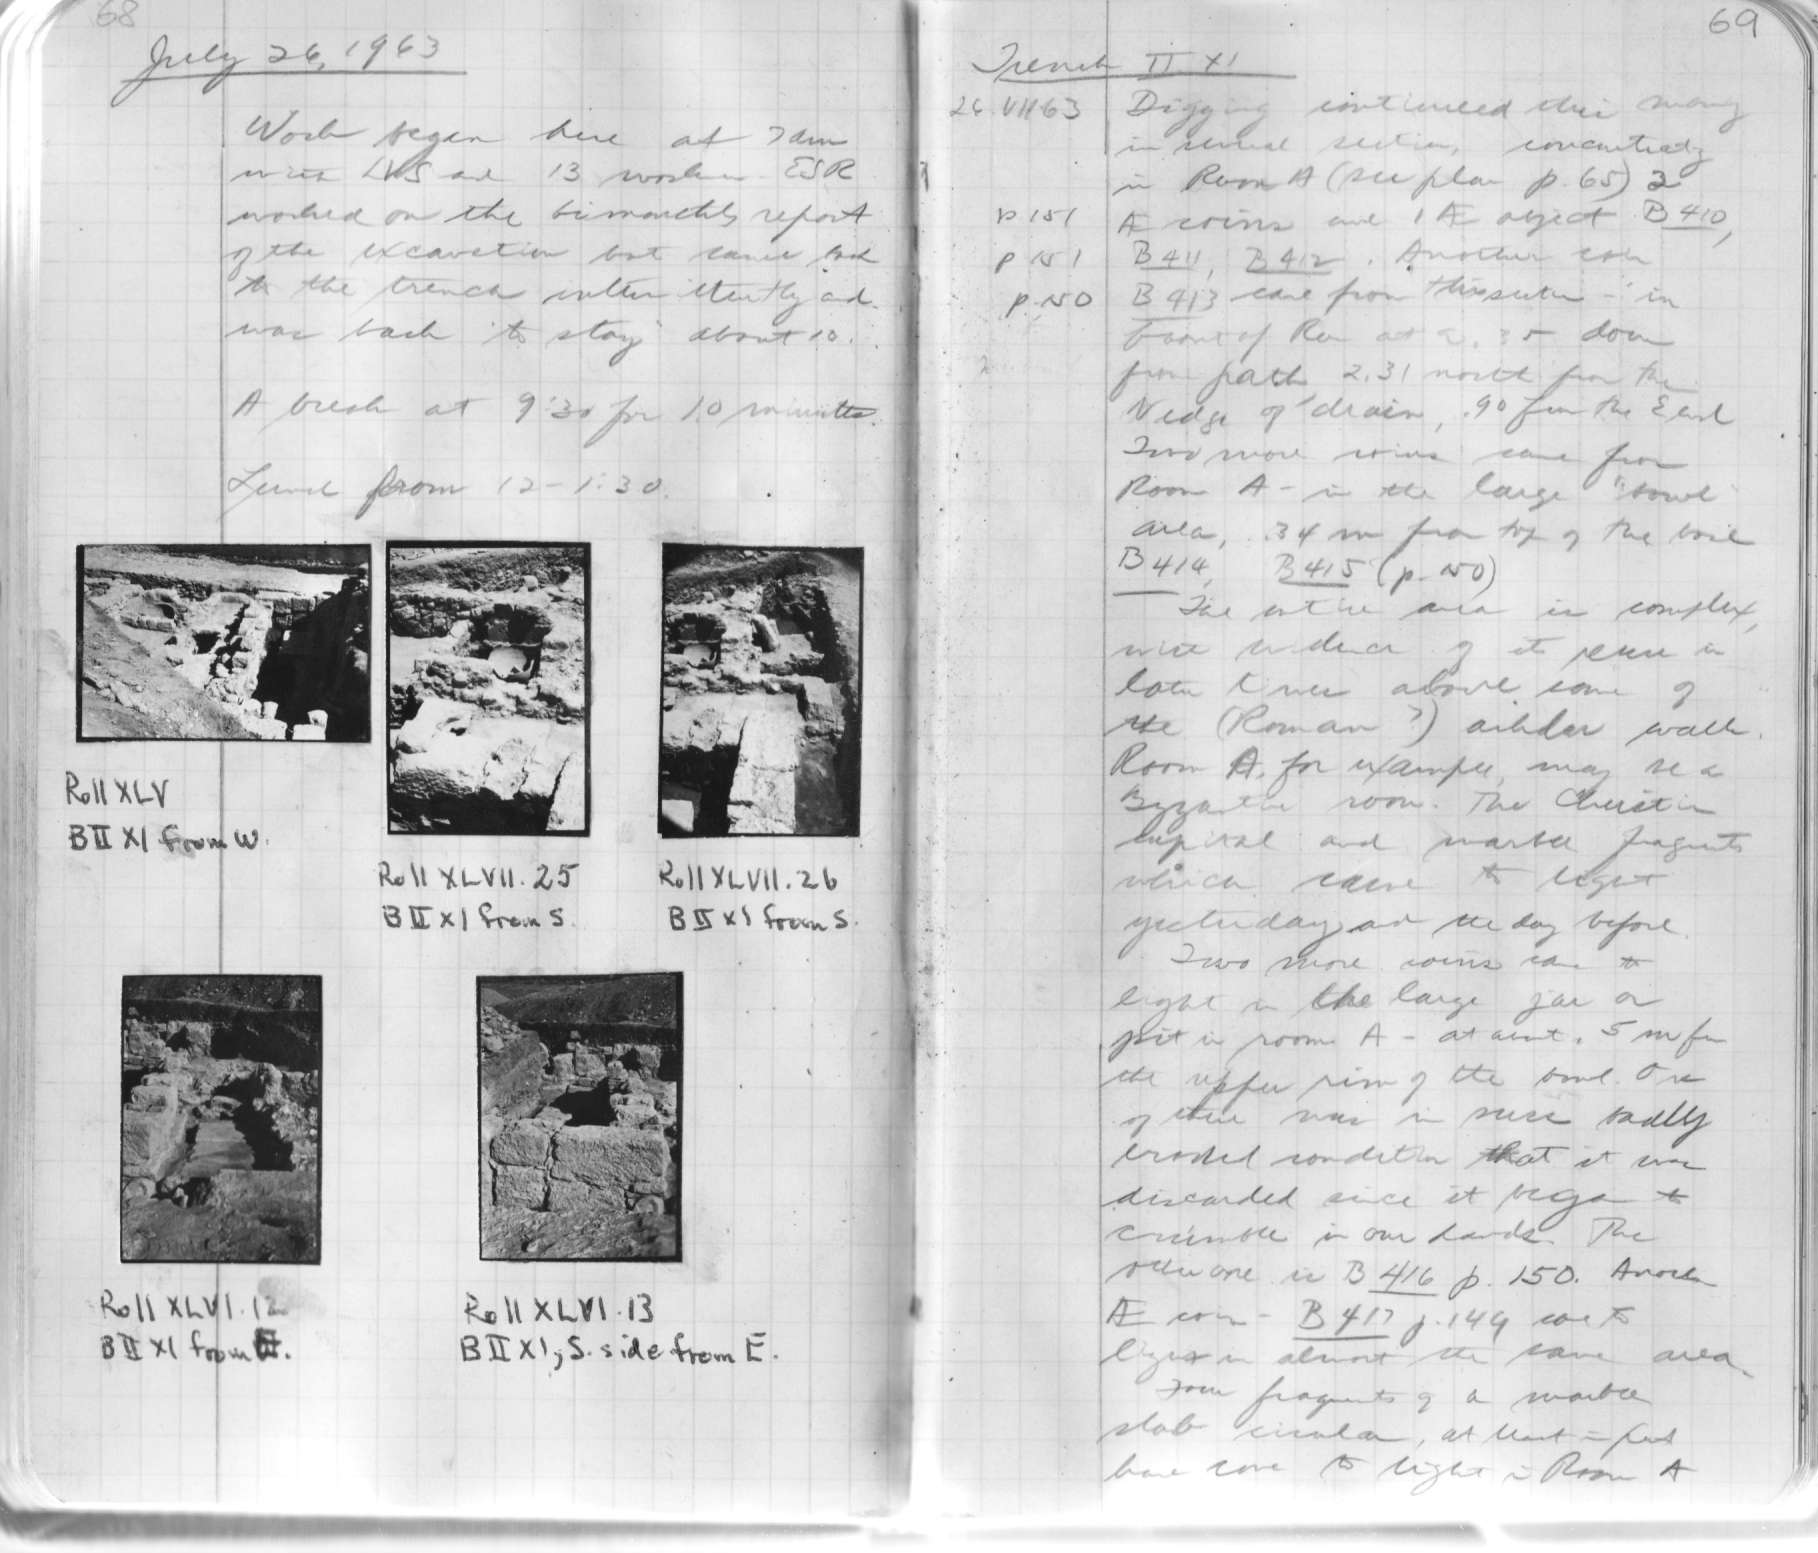 68
July 26, 1963
Work began here at 7 am
with LVS and 13 workmen ESR
worked on the bimonthly report
of the excavation but came back
to the trench intermittently and
was back to stay about 10.
A break at 9:30 for 10 minutes.
Lunch from 12-1:30.
Roll XLV
B II XI from W.
Roll XLVII.25
B II XI from S.
Roll XLVII.26
B II XI from S.
Roll XLVI.12
B II XI from
Roll XLVI.13
B II XI, S. side from E.
69
Trench II XI
26.VII 63 Digging continued this
in several section, concentrating
in Room A (see plan p. 65) 2
p 151 Æ coins and 1 Æ object B 410,
p 151 B 411, B 412. Another coin
p. 150 B 413 came from this section - in
front of at down
from path 2.31 north from the
N edge of drain, .90 from the E
Two more coins came from
Room A - in the large "bowl"
area, .34 m from top of the bowl
B 414, B 415 (p. 150)
The entire area is complex,
with evidence of its reuse in
later times above some of
the (Roman?) ashlar walls.
Room A, for example, may be a
Byzantine room. The Christian
capital and marble fragments
which came to light
yesterday and the day before.
Two more coins came to
light in the large jar or
pit in room A - at about .5 m from
the upper rim of the bowl. One
of these was in such badly
eroded condition that it was
discarded since it began to
crumble in our hands. The
other one is B 416 p. 150. Another
Æ coin - B 417 p. 149 came to
light in almost the same area.
Four fragments of a marble
slab circular, at least in part
have come to light in Room A